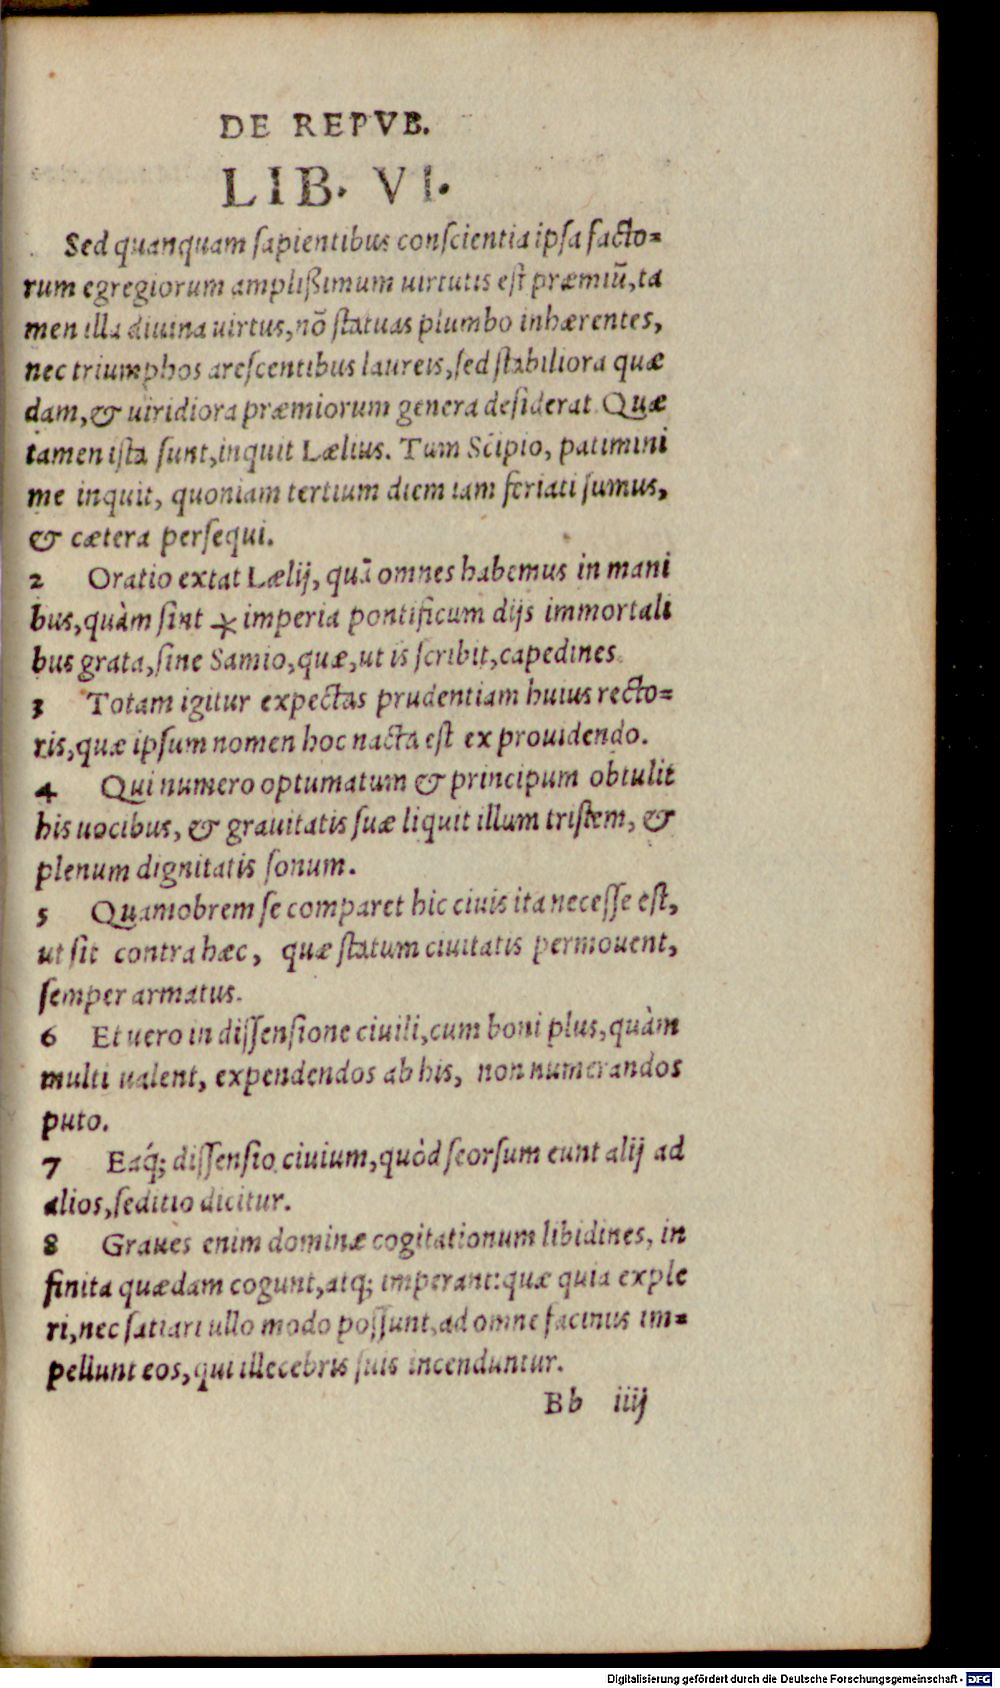 DE REPVB.
LIB. VI.
Sed quanquam ſapientibus conſcientia ipſa facto-
rum egregiorum ampliſsimum uirtutis eſt præmiũ, ta
men illa diuina uirtus, nõ ſtatuas plumbo inhærentes,
nec triumphos areſcentibus laureis, ſed ſtabiliora quæ
dam, & uiridiora præmiorum genera deſiderat. Quæ
tamen iſta ſunt, inquit Lælius. Tum Scipio, patimini
me inquit, quoniam tertium diem iam feriati ſumus,
& cætera perſequi.
2 Oratio extat Lælij, quã omnes habemus in mani
bus, quàm ſint ⁎ imperia pontificum dijs immortali
bus grata, ſine Samio, quæ, ut is ſcribit, capedines.
3 Totam igitur expectas prudentiam huius recto-
ris, quæ ipſum nomen hoc nacta eſt ex prouidendo.
4 Qui numero optumatum & principum obtulit
his uocibus, & grauitatis ſuæ liquit illum triſtem, &
plenum dignitatis ſonum.
5 Quamobrem ſe comparet hic ciuis ita neceſſe eſt,
ut ſit contra hæc, quæ ſtatum ciuitatis permouent,
ſemper armatus.
6 Et uero in diſſenſione ciuili, cum boni plus, quàm
multi ualent, expendendos ab his, non numerandos
puto.
7 Eaq́; diſſenſio ciuium, quòd ſeorſum eunt alij ad
alios, ſeditio dicitur.
8 Graues enim dominæ cogitationum libidines, in
finita quædam cogunt, atq; imperant: quæ quia exple
ri, nec ſatiari ullo modo poſſunt, ad omne facinus im-
pellunt eos, qui illecebris ſuis incenduntur.
Bb iiij
Digitalisierung gefördert durch die Deutsche Forschungsgemeinschaft - DFG